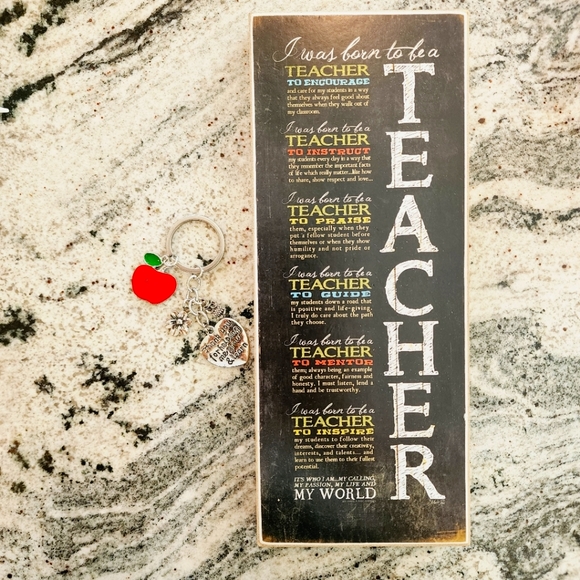 I was born to be a
TEACHER
TO ENCOURAGE
and care for my students in a way
that they always feel good about
themselves when they walk out of
my classroom.
I was born to be a
TEACHER
TO INSTRUCT
my students every day in a way that
they remember the important facts
of life which really matter...like how
to share, show respect and love...
I was born to be a
TEACHER
TO PRAISE
them, especially when they
put a fellow student before
themselves or when they show
humility and not pride or
arrogance.
I was born to be a
TEACHER
TO GUIDE
my students down a road that
is positive and life-giving.
I truly do care about the path
they choose.
I was born to be a
TEACHER
TO MENTOR
them; always being an example
of good character, fairness and
honesty. I must listen, lend a
hand and be trustworthy.
I was born to be a
TEACHER
TO INSPIRE
my students to follow their
dreams, discover their creativity,
interests, and talents... and
learn to use them to their fullest
potential.
IT'S WHO I AM...MY CALLING,
MY PASSION, MY LIFE AND
MY WORLD
TEACHER
for